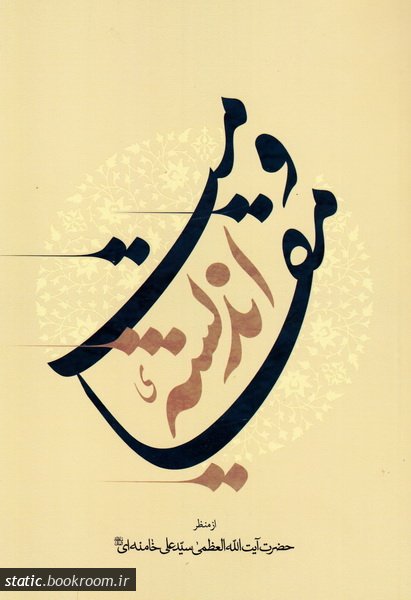 اندیشه‌ی
مقاومت
از منظر
حضرت آیت الله العظمی سیّد علی خامنه‌ای
static.bookroom.ir